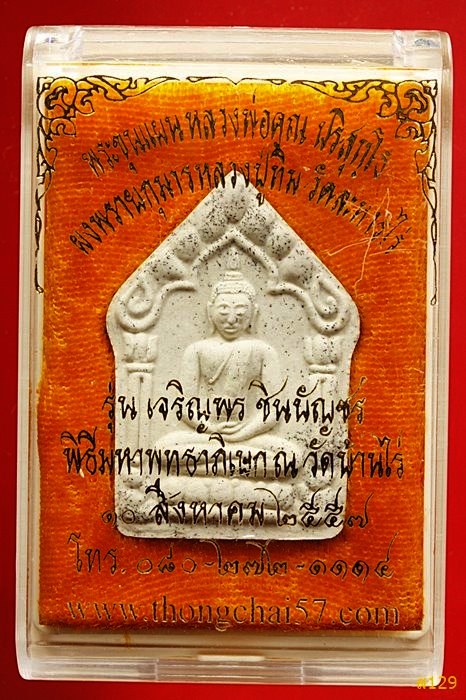 พระขุนแผน หลวงพ่อคูณ ปริสุทฺโธ
ผงพรายกุมารหลวงปู่ทิม วัดละหารไร่
รุ่น เจริญพร ชินบัญชร์
พิธีมหาพุทธาภิเษก ณ วัดบ้านไร่
๑๐ สิงหาคม ๒๕๕๗
โทร. ๐๘๐-๒๗๒-๑๑๑๔
www.thongchai57.com
#129